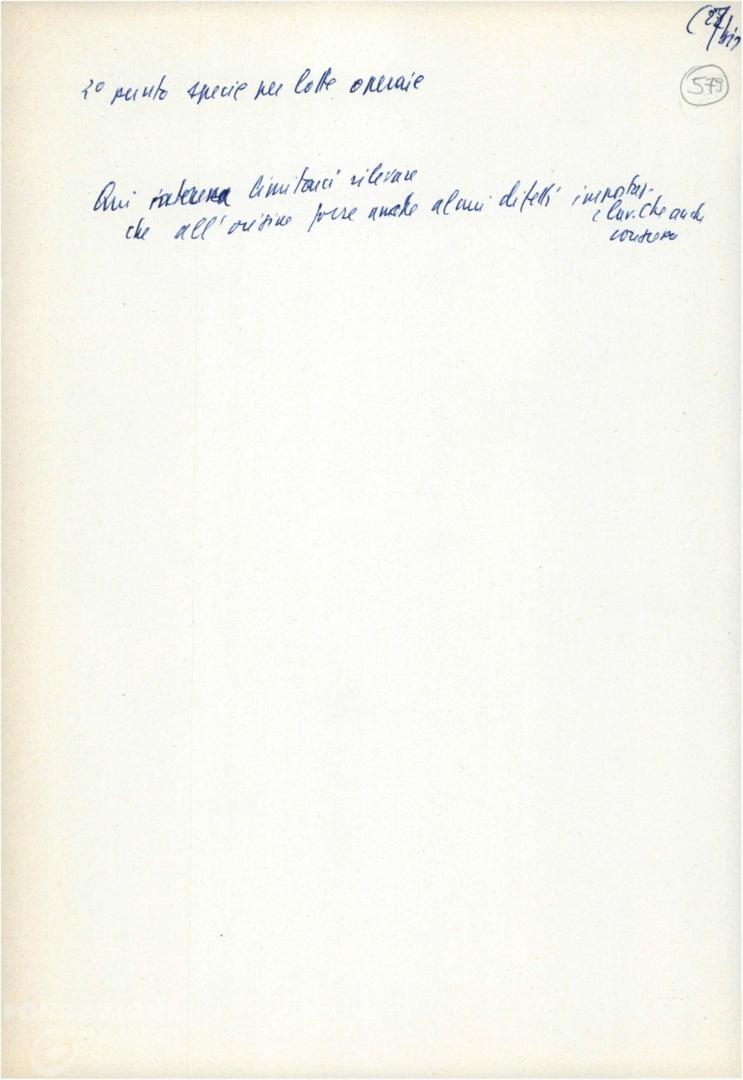 (27 bis
579
2° punto specie per lotte operaie
Qui interessa limitarci rilevare
che all'origine forse anche alcuni difetti impostaz.
che anche